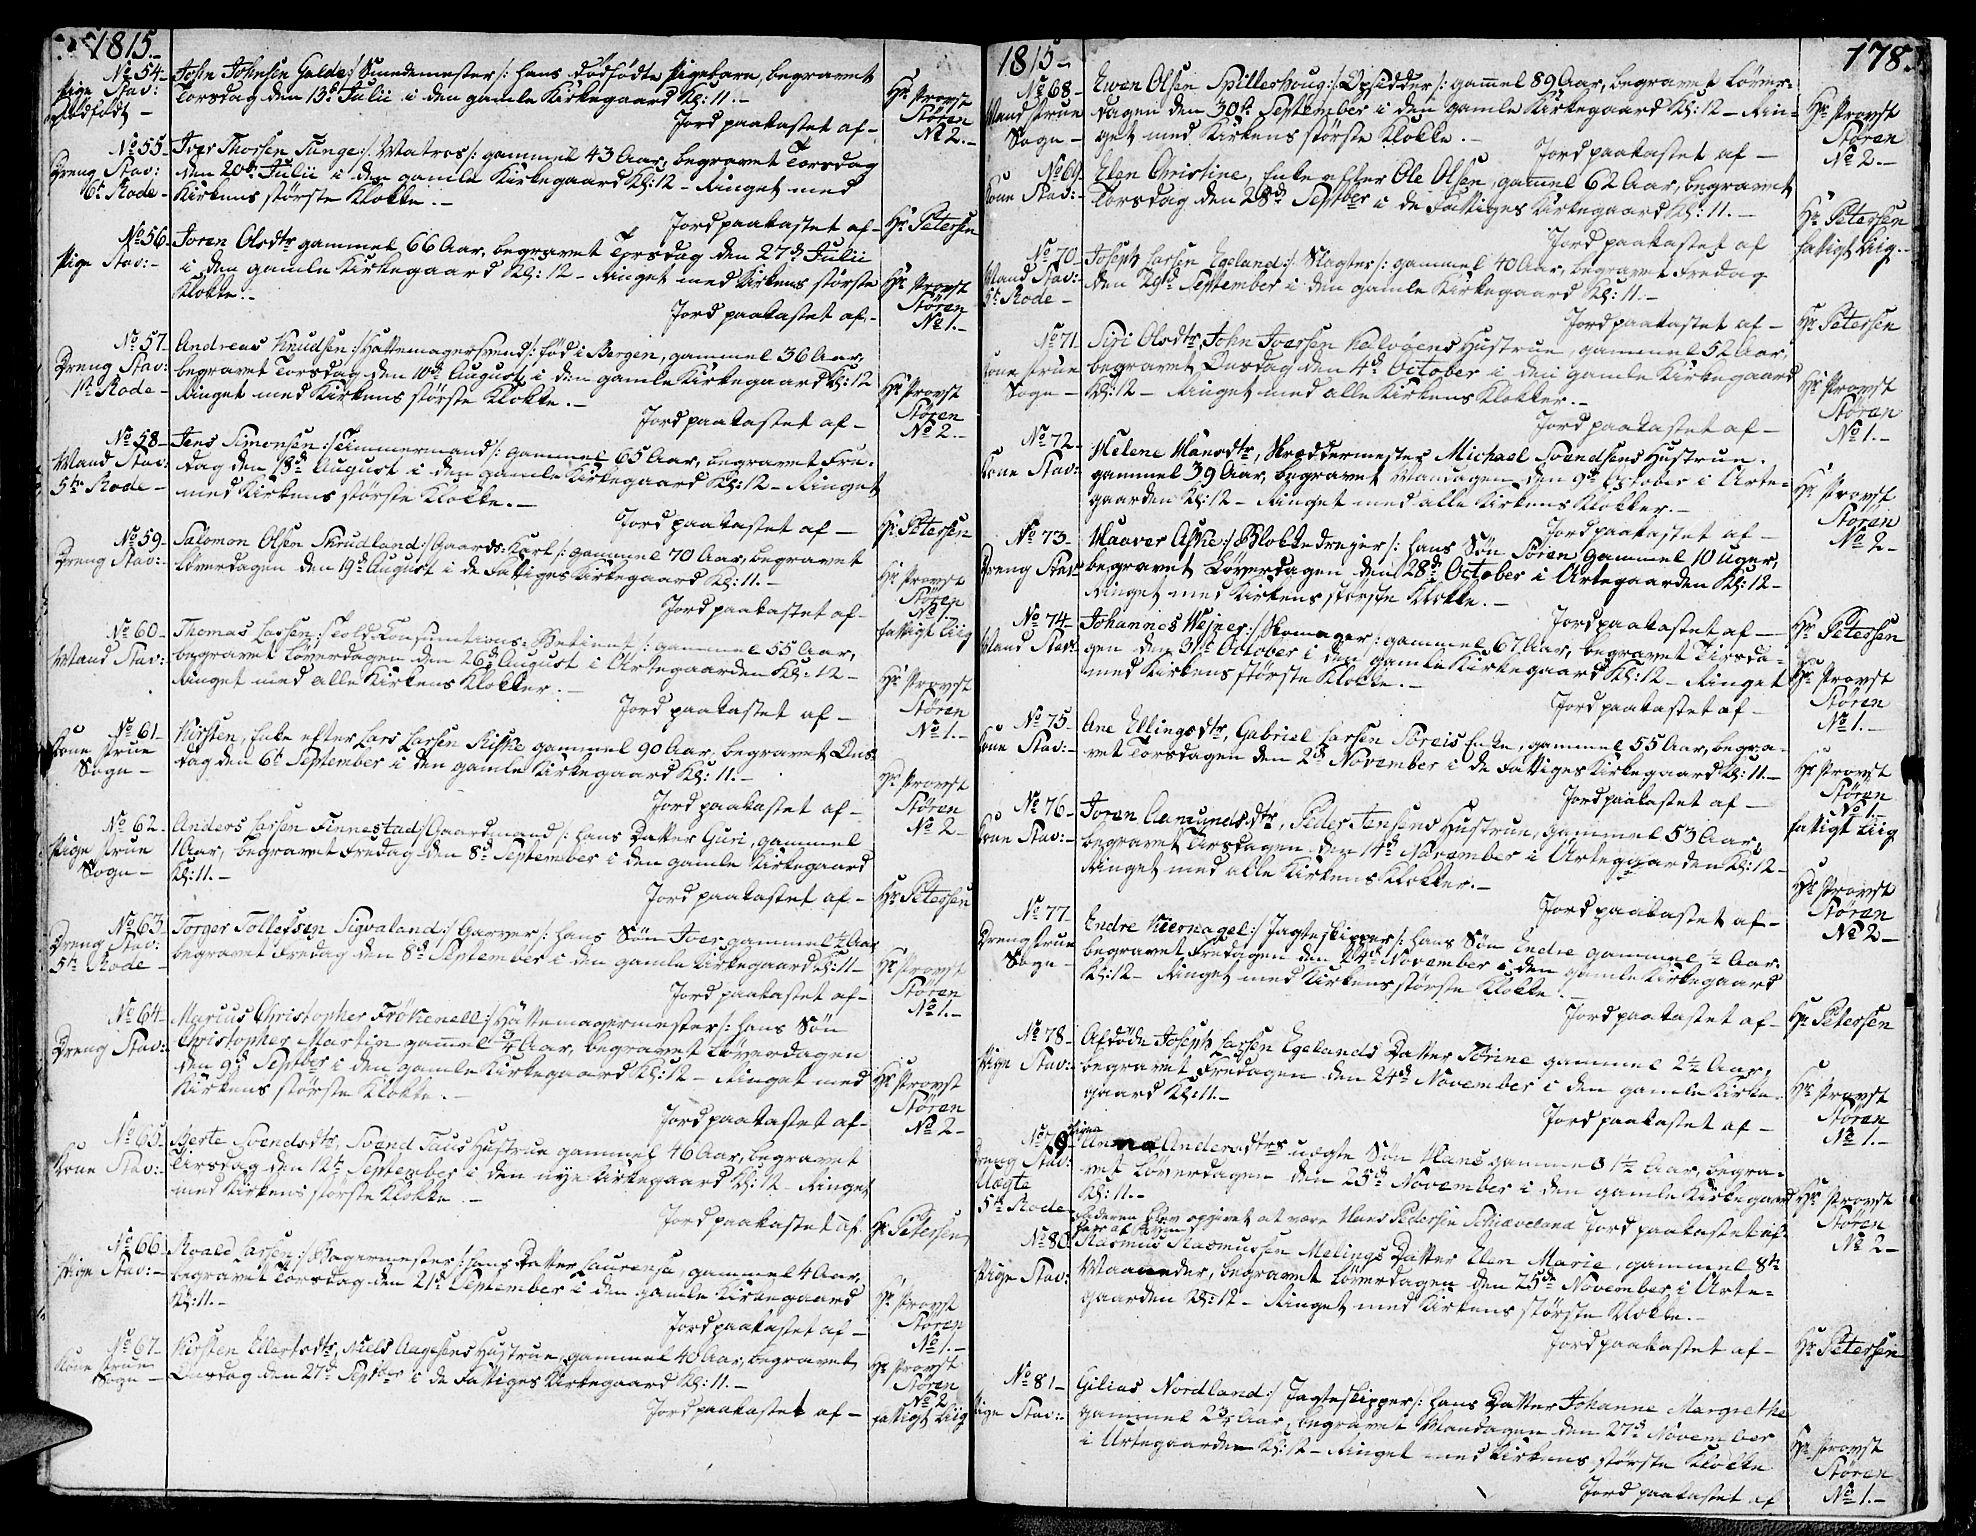 1815.-
No 54- John Johnsen Gelde :/ Smedemester /: hans dødfødte Pigebarn, begravet
Pige Stav: Torsdag den 13de Julii i den gamle Kirkegaard Kl: 11.-
Dødfødt - Jord paakastet af - Hr Provst Støren No 2.-
No 55- Iver Thorsen Tunge :/ Matros /: gammel 43 Aar, begravet Torsdag
Dreng Stav: den 20de Julii i den gamle Kirkegaard Kl: 12 - Ringet med
6te Rode - Kirkens største Klokke.-
Jord paakastet af - Hr Petersen
No 56- Joren Olsdtr gammel 66 Aar, begravet Torsdag den 27de Julii
Pige Stav:- i den gamle Kirkegaard Kl: 12 - Ringet med Kirkens største
Klokke.-
Jord paakastet af - Hr Provst Støren No 1.-
No 57- Andreas Knudsen :/ Hattemagersvend /: fød i Bergen, gammel 36 Aar,
Dreng Stav: begravet Torsdag den 10de August i den gamle Kirkegaard Kl: 12
1te Rode - Ringet med Kirkens største Klokke.-
Jord paakastet af - Hr Provst Støren No 2.-
No 58- Jens Simonsen :/ Tømmermand /: gammel 65 Aar, begravet Fre-
Mand Stav: dag den 18de August i den gamle Kirkegaard Kl: 12 - Ringet
5te Rode - med Kirkens største Klokke.-
Jord paakastet af - Hr Petersen
No 59- Salomon Olsen Skrudland :/ Gaards-Karl /: gammel 70 Aar, begravet
Dreng Stav:- Løverdagen den 19de August i de Fattiges Kirkegaard Kl: 11.-
Jord paakastet af - Hr Provst Støren No 1.- fattigt Liig
No 60- Thomas Lassen :/ Told-Consumtions-Betient /: gammel 55 Aar,
Mand Stav: begravet Løverdagen den 26de August i Urtegaarden Kl: 12 -
Ringet med alle Kirkens Klokker.-
Jord paakastet af - Hr Provst Støren No 1.-
No 61- Kirsten, Enke efter Lars Larsen Kiske gammel 90 Aar, begravet Ons-
Kone frue dag den 6te September i den gamle Kirkegaard Kl: 11.-
Sogn -
Jord paakastet af - Hr Provst Støren No 2-
No 62- Anders Larsen Finnestad :/ Gaardmand /: hans Datter Guri, gammel
Pige frue 1 Aar, begravet Fredag den 8de September i den gamle Kirkegaard
Sogn - Kl: 11.-
Jord paakastet af - Hr Petersen
No 63- Torger Tollefsen Tigvaland :/ Garver /: hans Søn Iver gammel ½ Aar
Dreng Stav: begravet Fredag den 8de September i den gamle Kirkegaard Kl: 11-
5te Rode -
Jord paakastet af - Hr Provst Støren No 1.-
No 64- Marcus Christopher Frökenell :/ Hattemagermester /: hans Søn
Dreng Stav: Christopher Martin gammel ¾ Aar, begravet Løverdagen
den 9de Septbr i den gamle Kirkegaard Kl: 12 - Ringet med
Kirkens største Klokke.-
Jord paakastet af - Hr Provst Støren No 2-
No 65- Berte Svendsdtr, Svend Taus Hustrue gammel 46 Aar, begravet
Kone Stav: Tirsdag den 12te September i den nye Kirkegaard Kl: 12 - Ringet
med Kirkens største Klokke.-
Jord paakastet af Hr Petersen
No 66- Roald Larsen :/ Bagermester /: hans Datter Laurense, gammel 4 Aar,
Pige Stav:- begravet Torsdag den 21de September i den gamle Kirkegaard
Kl: 11.-
Jord paakastet af - Hr Provst Støren No 1.-
No 67- Kirsten Ellertsdtr, Niels Aagesens Hustrue, gammel 40 Aar, begravet
Kone frue Onsdag den 27de Septber i de Fattiges Kirkegaard Kl: 11.-
Sogn -
Jord paakastet af - Hr Provst Støren No 2 fattigt Liig
1815- 178.
No 68- Even Olsen Spillerhoug :/ Opsidder /: gammel 89 Aar, begravet Løver-
Mand frue dagen den 30te September i den gamle Kirkegaard Kl: 12 - Rin-
Sogn - get med Kirkens største Klokke.-
Jord paakastet af - Hr Provst Støren No 2.-
No 69- Elen Christine, Enke efter Ole Olsen, gammel 62 Aar, begravet
Kone Stav:- Torsdag den 28de Septber i de Fattiges Kirkegaard Kl: 11.-
Jord paakastet af Hr Petersen fattigt Liig.-
No 70- Joseph Larsen Egeland :/ Slagter /: gammel 40 Aar, begravet Fredag
Mand Stav: den 29de September i den gamle Kirkegaard Kl: 11.-
5te Rode -
Jord paakastet af - Hr Petersen
No 71 Siri Olsdtr, John Iversen Kalvøens Hustrue, gammel 52 Aar,
Kone frue begravet Onsdag den 4de October i den gamle Kirkegaard
Sogn - Kl: 12 - Ringet med alle Kirkens Klokker.-
Jord paakastet af - Hr Provst Støren No 1.-
No 72- Helene Hansdtr, Skræddermester Michael Svendsens Hustrue,
Kone Stav: gammel 39 Aar, begravet Mandagen den 9de October i Urte-
gaarden Kl: 12 - Ringet med alle Kirkens Klokker.-
Jord paakastet af - Hr Provst Støren No 2-
No 73- Haaver Aske :/ Blokkedreyer /: hans Søn Søren gammel 10 Uger,
Dreng Stav: begravet Løverdagen den 28de October i Urtegaarden Kl: 12-
Ringet med Kirkens største Klokke.-
Jord paakastet af - Hr Petersen
No 74- Johannes Wejner :/ Skomager /: gammel 67 Aar, begravet Tirsda-
Mand Stav: gen den 31te October i den gamle Kirkegaard Kl: 12 - Ringet
med Kirkens største Klokke.-
Jord paakastet af - Hr Provst Støren No 1.-
No 75- Ane Ellingsdtr, Gabriel Larsen Soreis Enke, gammel 55 Aar, begra-
Kone Stav:- vet Torsdagen den 2de November i de Fattiges Kirkegaard Kl: 11.-
Jord paakastet af - Hr Provst Støren No 1- fattigt Liig
No 76- Joren Aamundsdtr, Peder Jensens Hustrue, gammel 53 Aar,
Kone Stav:- begravet Tirsdagen den 14de November i Urtegaarden Kl: 12-
Ringet med alle Kirkens Klokker.-
Jord paakastet af - Hr Provst Støren No 2-
No 77- Endre Kiernagel :/ Jagteskipper /: hans Søn Endre gammel ½ Aar,
Dreng frue begravet Fredagen den 24de November i den gamle Kirkegaard
Sogn - Kl: 12 - Ringet med Kirkens største Klokke.
Jord paakastet af - Hr Petersen
No 78- Afdøde Joseph Larsen Egelands Datter Trine gammel 2½ Aar,
Pige Stav: begravet Fredagen den 24de November i den gamle Kirke-
gaard Kl: 11.-
Jord paakastet af - Hr Provst Støren No 1.-
No 79- Anna Andersdtrs uægte Søn Hans gammel 1½ Aar, begra-
Dreng Stav: vet Løverdagen den 25de November i den gamle Kirkegaard
Uægte Kl: 11.-
5te Rode - Faderen blev opgivet at være Hans Pedersen Schiæveland Jord paakastet af Hr Provst Støren No 2-
No 80 Rasmus Rasmussen Melings Datter Elen Marie, gammel 8te
Pige Stav: Maaneder, begravet Løverdagen den 25de November i Urte-
gaarden Kl: 12 - Ringet med Kirkens største Klokke.-
Jord paakastet af - Hr Petersen
No 81- Gilius Nordland :/ Jagteskipper /: hans Datter Johanne Margrethe
Pige Stav:- gammel 2¾ Aar, begravet Mandagen den 27de November
i Urtegaarden Kl: 12 - Ringet med Kirkens største Klokke
Jord paakastet af Hr Provst Støren No 1.-